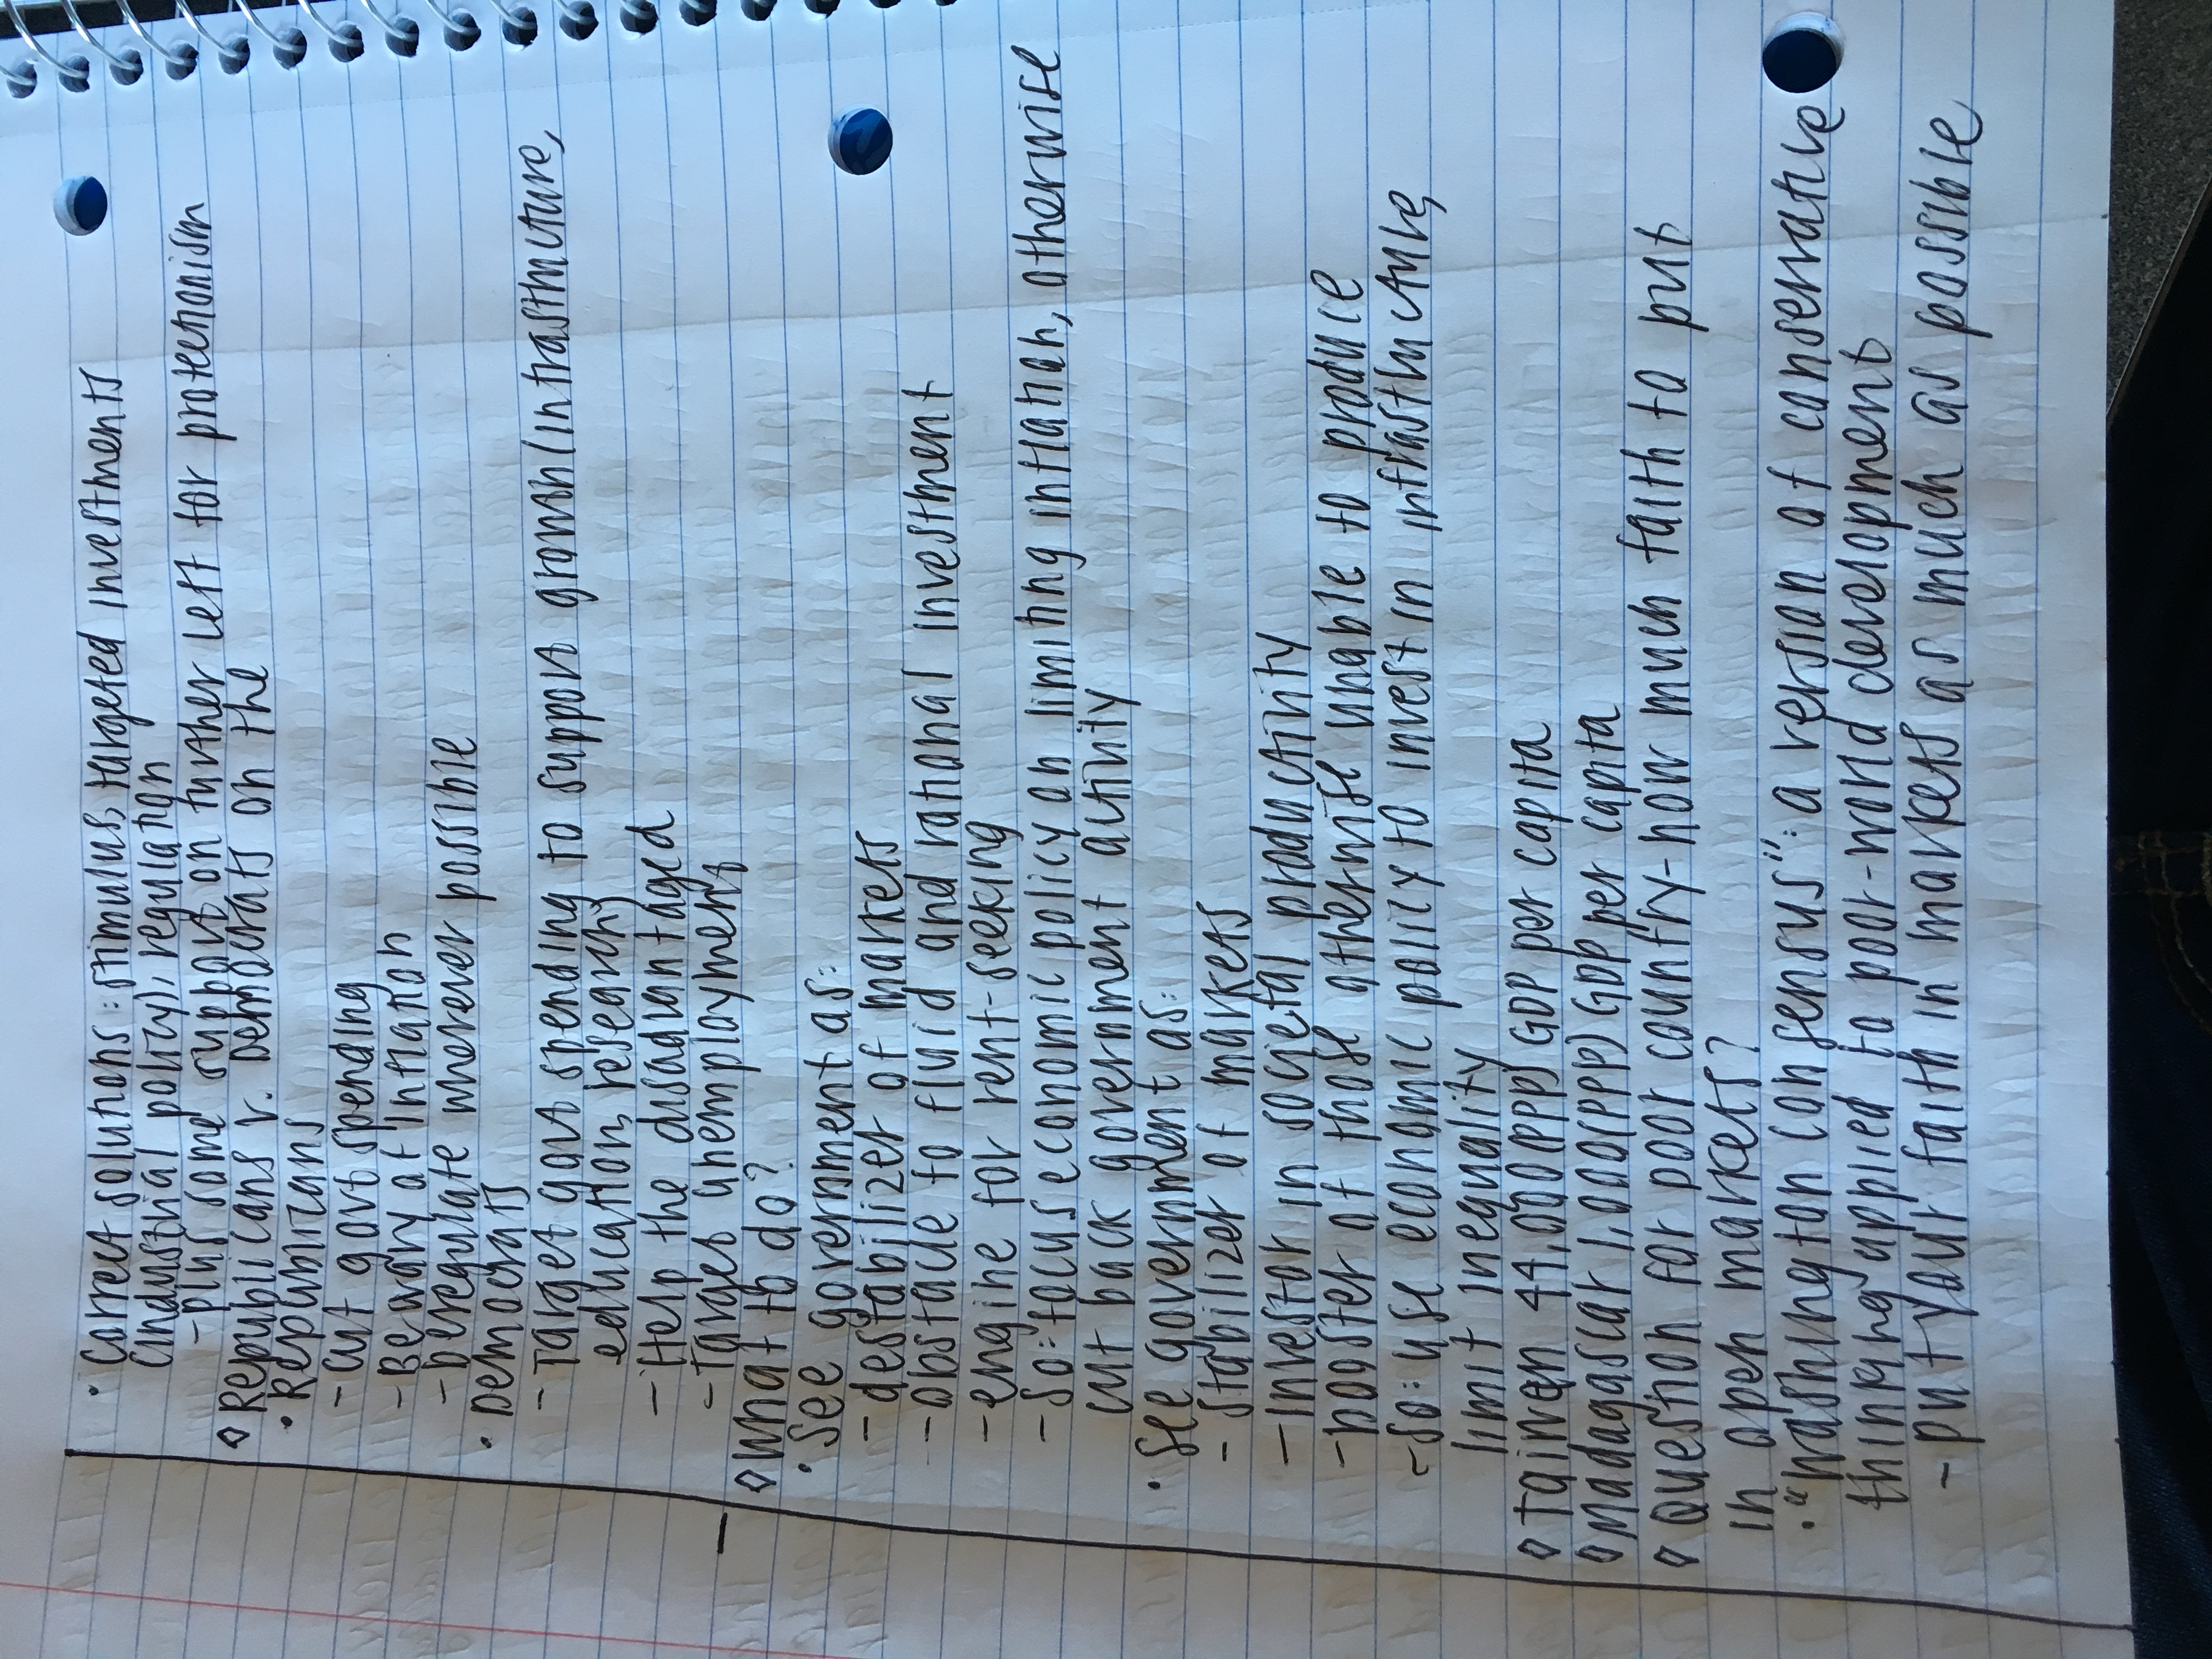 · Correct solutions: stimulus, targeted investments
(industrial policy), regulation
- plus some support on further left for protectionism
◊ Republicans v. Democrats on the
· Republicans
- cut govt spending
- Be wary of inflation
- Deregulate wherever possible
· Democrats
- Target govt spending to support growth (infrastructure,
education, research)
- Help the disadvantaged
- Target unemployment
◊ What to do?
· See government as:
- destabilizer of markets
- obstacle to fluid and rational investment
- engine for rent-seeking
- So: focus economic policy on limiting inflation, otherwise
cut back government activity
· See government as:
- Stabilizer of markets
- Investor in societal productivity
- booster of those otherwise unable to produce
- So: use economic policy to invest in infrastructure,
limit inequality
◊ Taiwan 44,000 (PPP) GDP per capita
◊ Madagascar 1,000 (PPP) GDP per capita
◊ Question for poor country - how much faith to put
in open markets?
· "Washington Consensus": a version of conservative
thinking applied to poor-world development
- put your faith in markets as much as possible